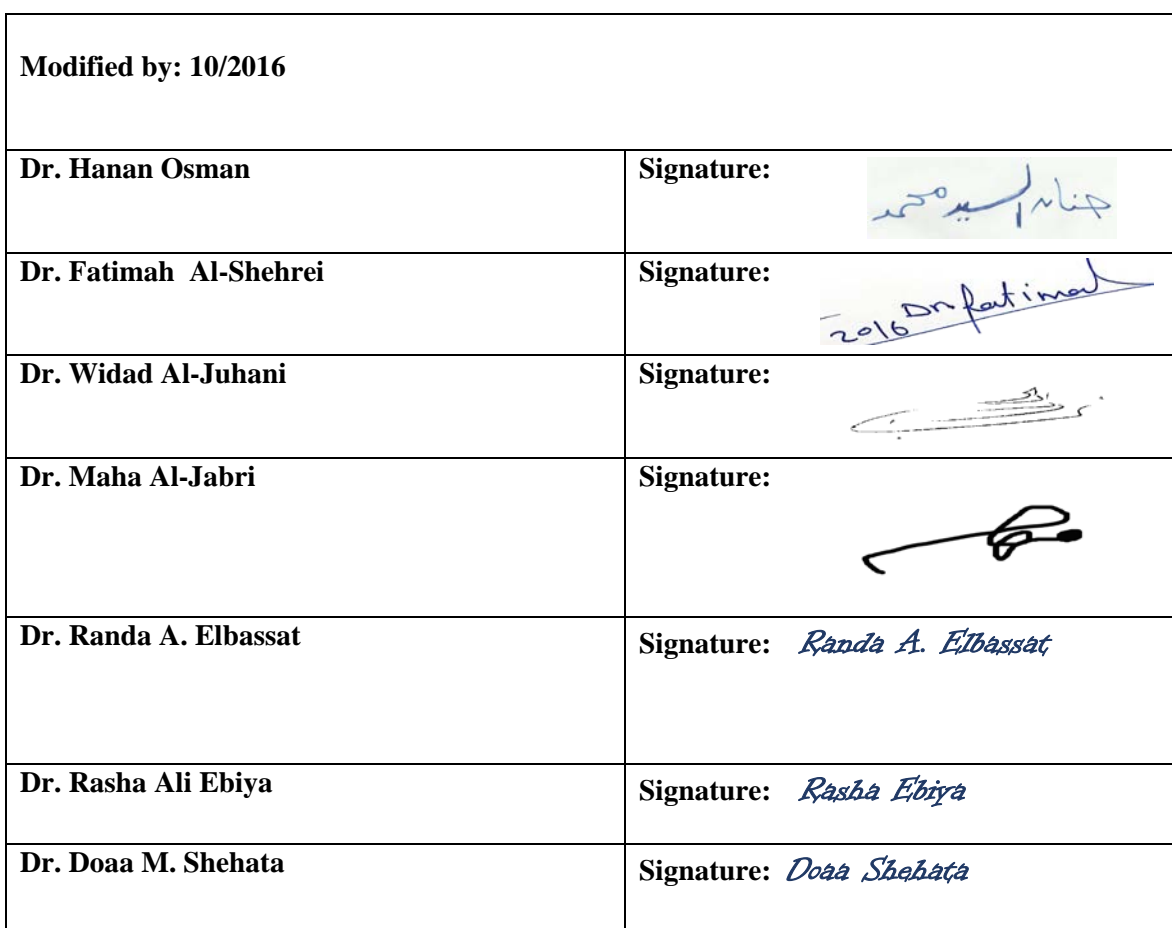 Modified by: 10/2016
Dr. Hanan Osman Signature: حنان السيد محمد
Dr. Fatimah Al-Shehrei Signature: Dr. fatimah
2016
Dr. Widad Al-Juhani Signature:
Dr. Maha Al-Jabri Signature:
Dr. Randa A. Elbassat Signature: Randa A. Elbassat
Dr. Rasha Ali Ebiya Signature: Rasha Ebiya
Dr. Doaa M. Shehata Signature: Doaa Shehata